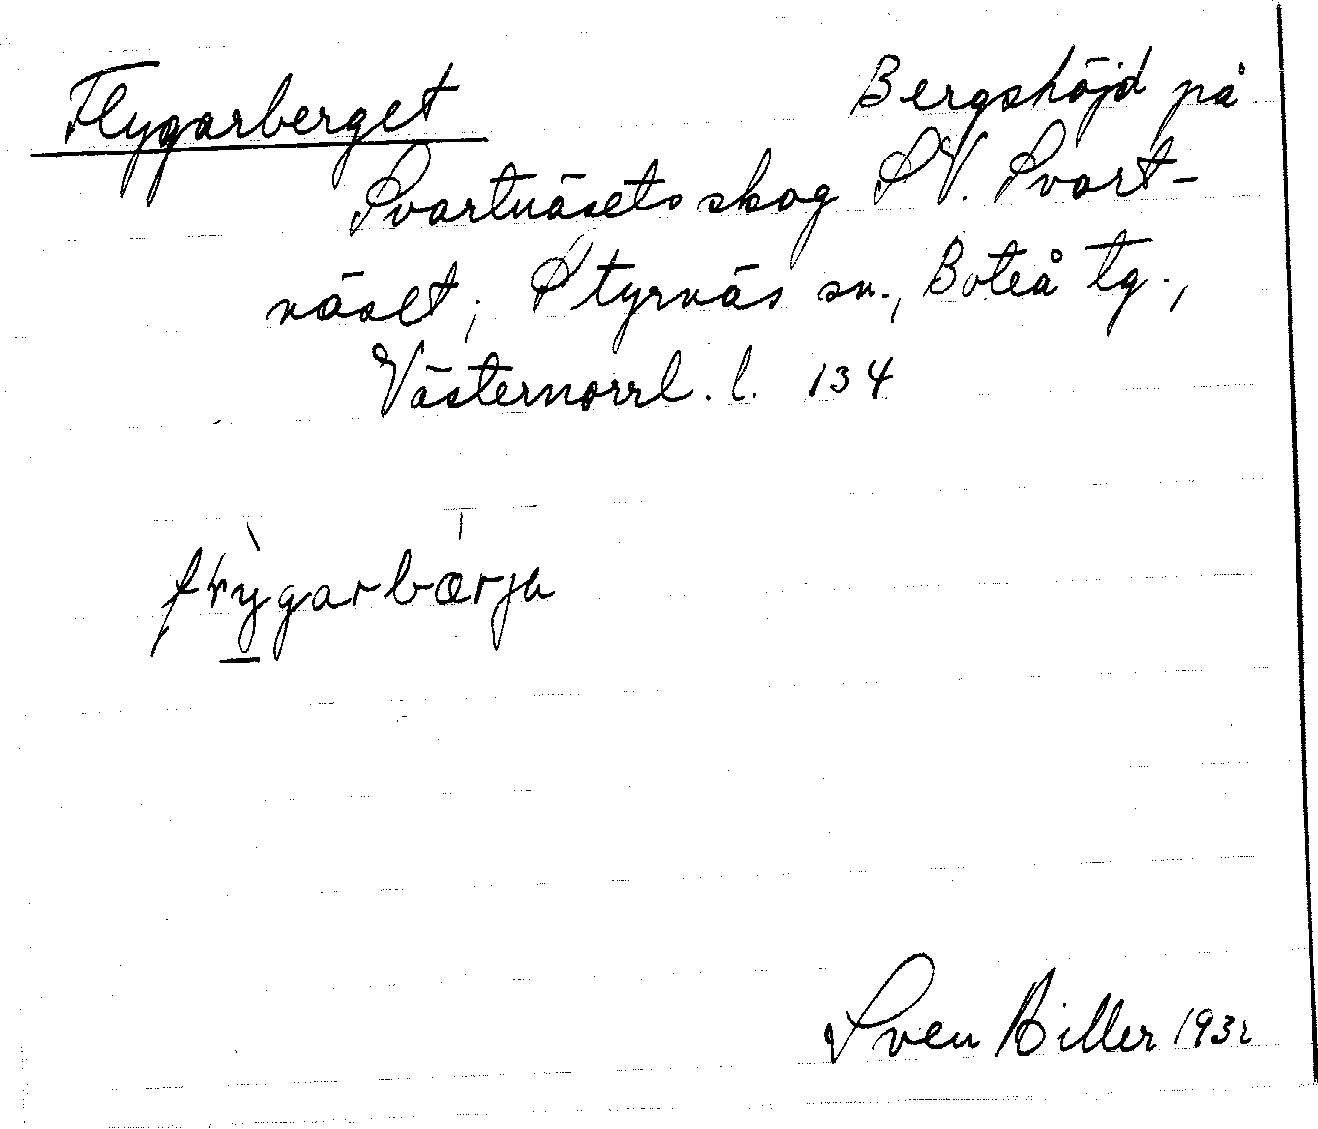 Flygarberget Bergshöjd på
Svartnäsets skog SV. Svart-
näset; Styrnäs sn., Boteå tg.,
Västernorrl. l. 134
frỳgarbærja
Sven Biller 1932